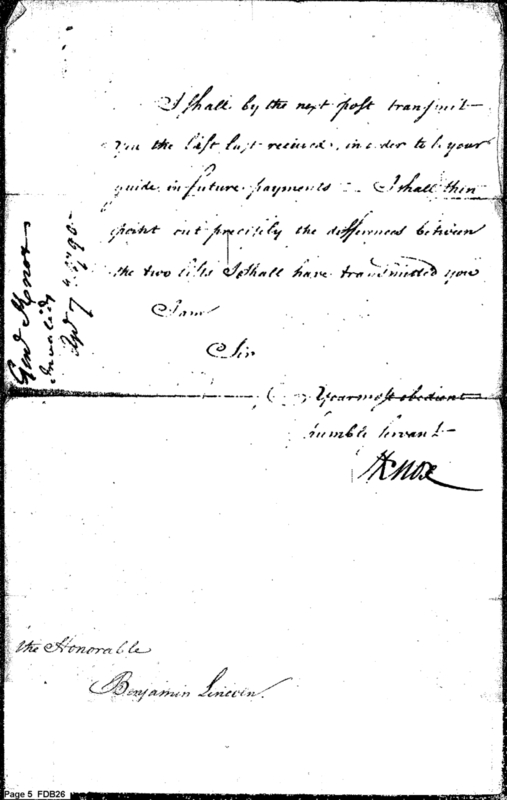 I shall by the next post transmit
you the list last received, in order to be your
guide in future payments — I shall then
point out precisely the differences between
the two lists I shall have transmitted you
I am
Sir
Your most obedient
humble servant
HKnox
the Honorable
Benjamin Lincoln.
Genl Knox
Invalids
Apl 7th 1790
Page 5 FDB26